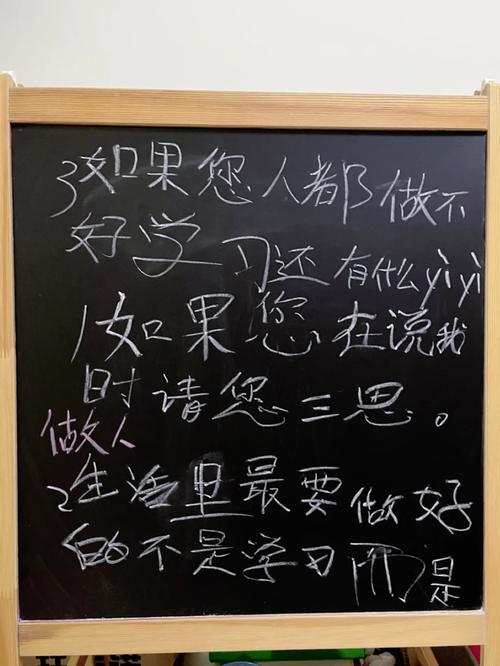 3如果您人都做不
好学习还有什么yìyì
1如果您在说我
时请您三思。
做人
2生活里最要做好
的不是学习而是